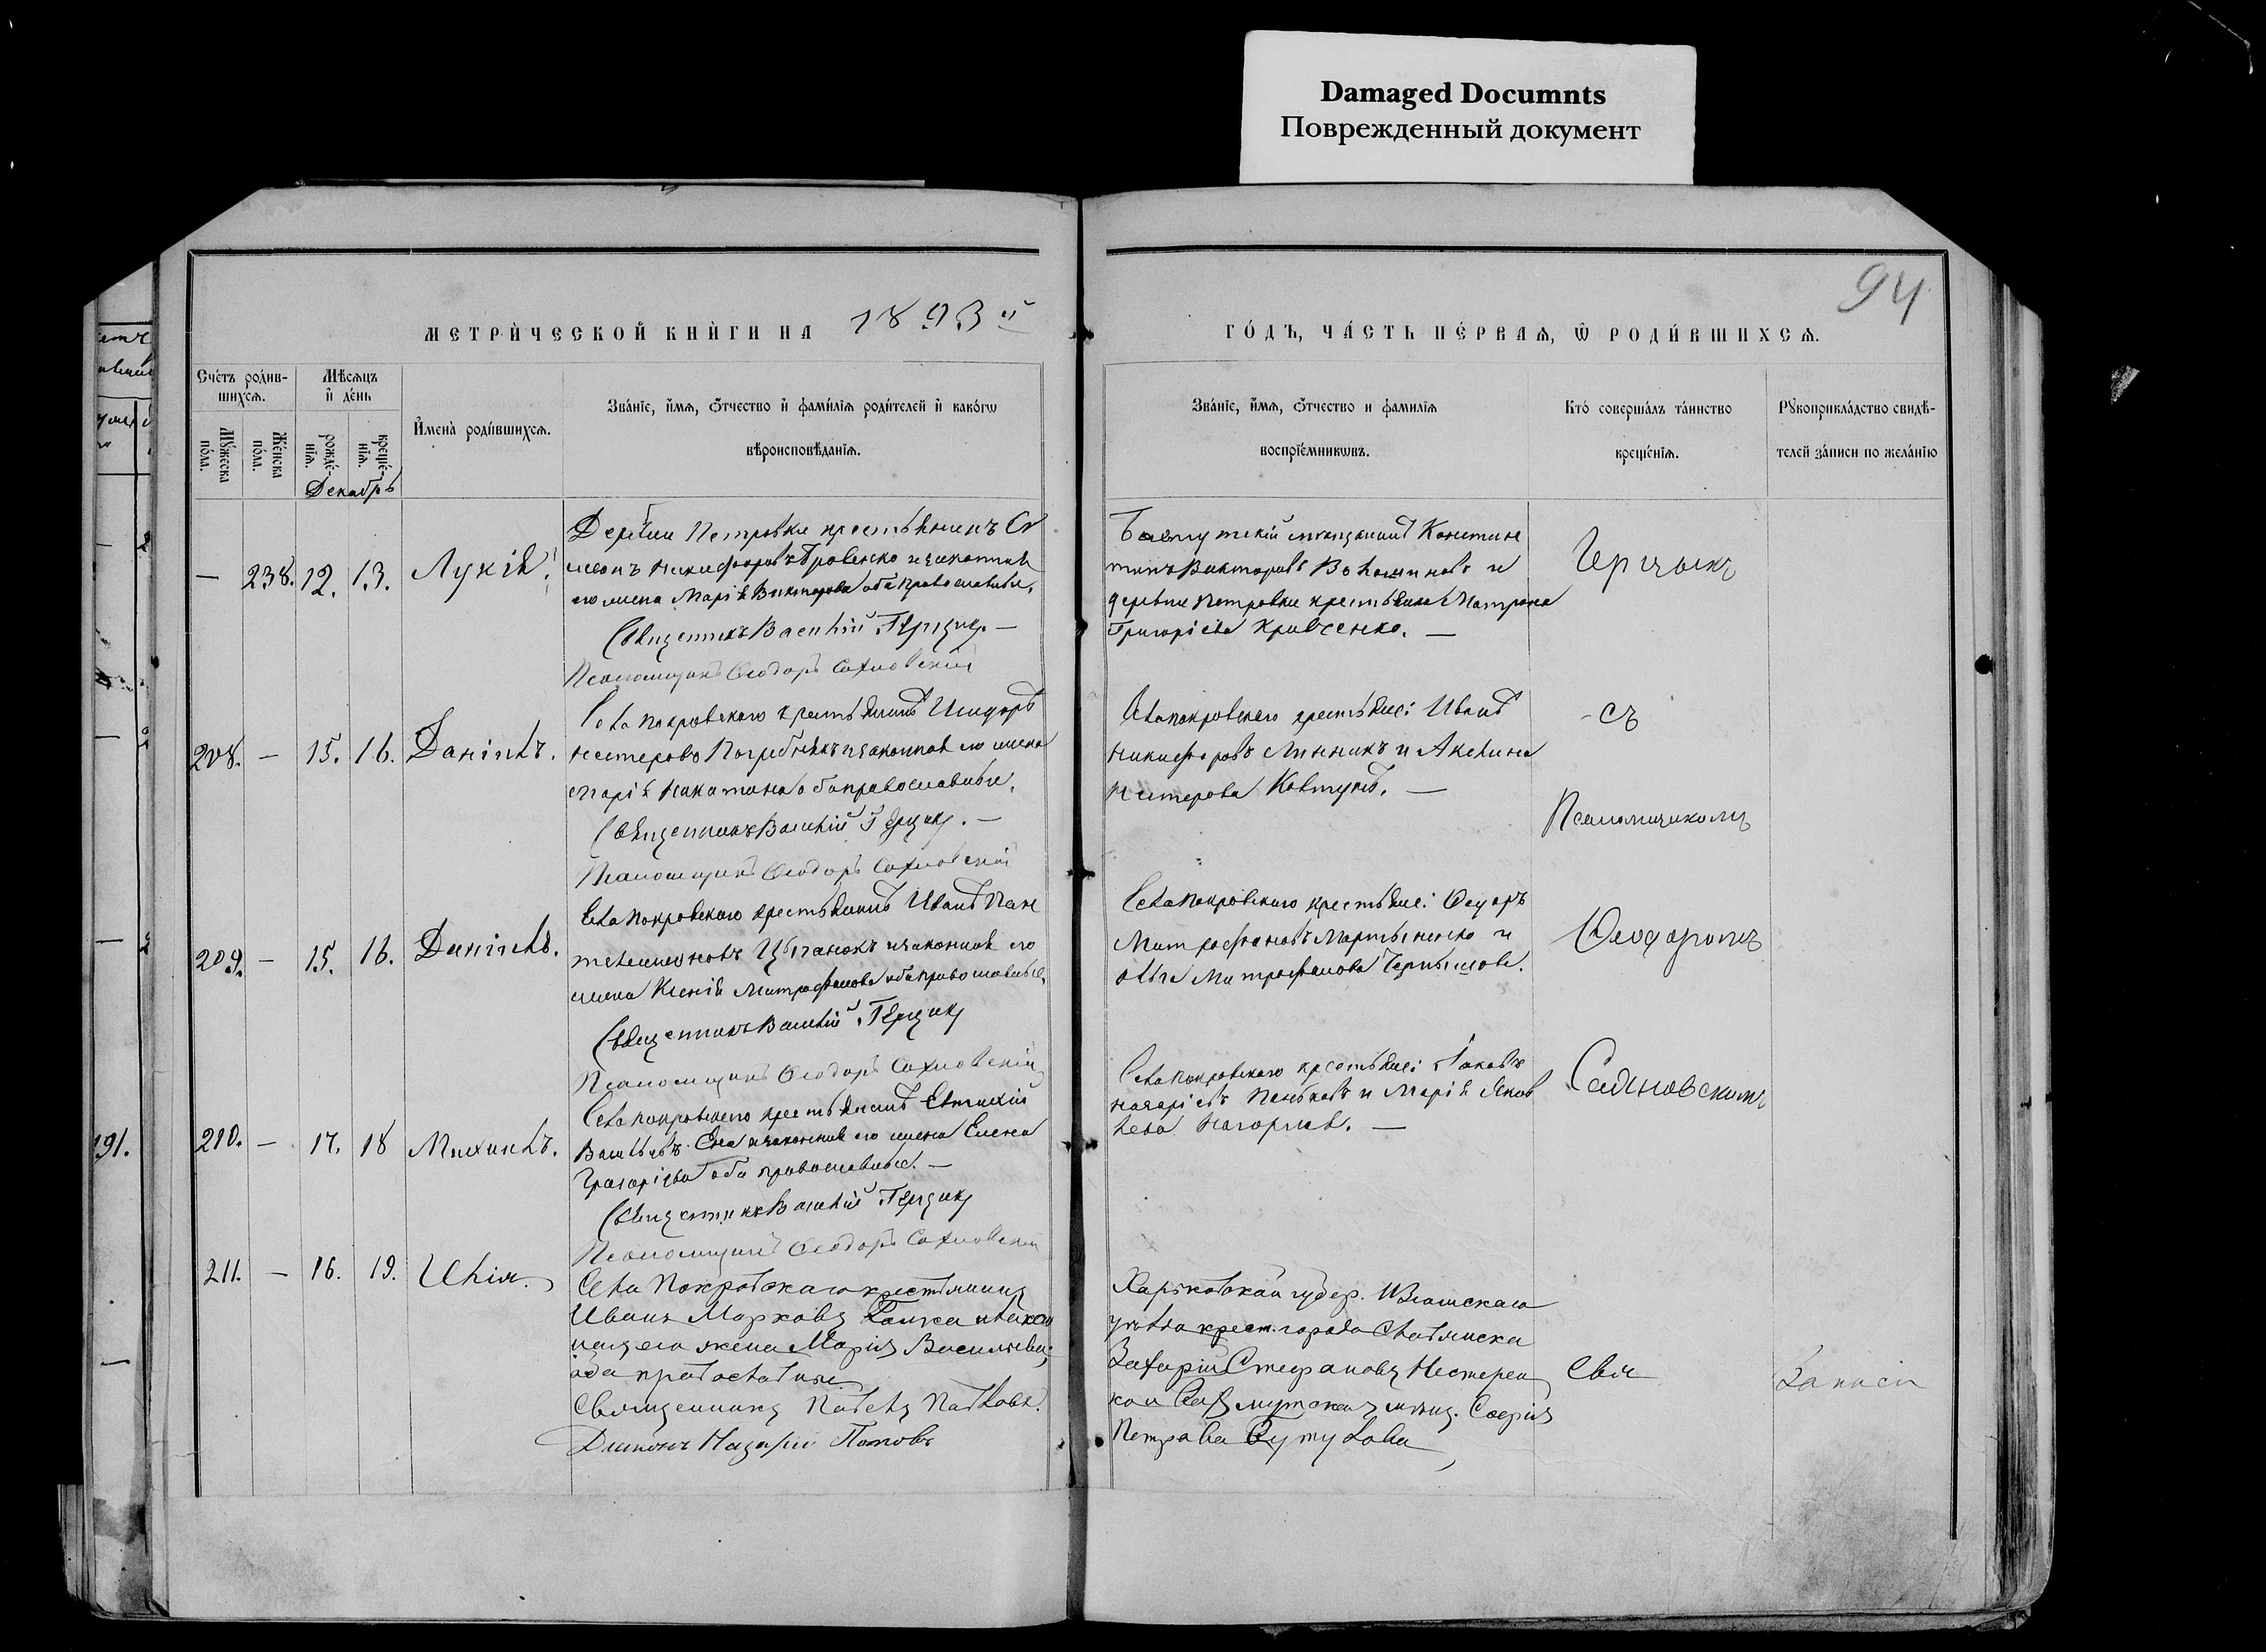 Damaged Documnts
Поврежденный документ
94
МЕТРИ́ЧЕСКОЙ КНИ́ГИ НА 1893й
ГО́ДЪ, ЧА́СТЬ ПЕ́РВАЯ, Ѡ РОДИ́ВШИХСЯ.
Сче́тъ роди́в-
шихся.
Му́жеска по́ла.
Же́нска по́ла.
Мѣсяцъ и де́нь
рожде́-нїя.
креще́-нїя.
Декабрь
И҆мена̀ роди́вшихся.
Зва́нїе, и҆́мя, ѻ҆́тчество и҆ фами́лїя роди́телей и҆ како́гѡ
вѣроисповѣ́данїя.
Зва́нїе, и҆́мя, ѻ҆́тчество и фамилїя
воспрїе́мникѡвъ.
Кто̀ соверша́лъ та́инство
креще́нїя.
Рꙋкоприкла́дство свидѣ́-
телей за́писи по жела́нїю
— 238. 12. 13.
Деревни Петровки крестьянинъ Си
меонъ Никифоровъ Гровенко и законная
его жена Марія Викторова оба православные.
Священникъ Василій Герцыкъ. —
Псаломщикъ Ѳеодоръ Сахновскій
Бахмутскій мещанинъ Констан
тинъ Викторовъ и
деревни Петровки крестьянка Матрона
Григоріева Кравченко. —
Герцыкъ
208. — 15. 16. Даніилъ.
Села Покровскаго крестьянинъ Исидоръ
Нестеровъ и законная его жена
Марія оба православные.
Священникъ Василій Герцыкъ. —
Псаломщикъ Ѳеодоръ Сахновскій
Села Покровскаго крестьяне: Иванъ
Никифоровъ Линникъ и Акилина
Нестерова Ковтунъ. —
съ
Псаломщикомъ
209. — 15. 16. Даніилъ.
Села Покровскаго крестьянинъ Иванъ Пан
телеимоновъ Цыганокъ и законная его
жена Ксенія Митрофанова оба православные.
Священникъ Василій Герцыкъ
Псаломщикъ Ѳеодоръ Сахновскій
Села Покровскаго крестьяне: Ѳедоръ
Митрофановъ Мартыненко и
Митрофанова
Ѳеодоромъ
210. — 17. 18 Михаилъ.
Села Покровскаго крестьянинъ Евтихій
Васильевъ и законная его жена Елена
Григоріева оба православные. —
Священникъ Василій Герцыкъ
Псаломщикъ Ѳеодоръ Сахновскій
Села Покровскаго крестьяне: Іаковъ
Назаріевъ и Марія Яков
лева Нагорная. —
Сахновскимъ
191.
211. — 16. 19. Илія.
Села Покровскаго крестьянинъ
Иванъ Марковъ и закон
ная его жена Марія Васильева;
оба православные
Священникъ Павелъ Павловъ.
Діаконъ Назарій Поповъ
Харьковской губер. Изюмскаго
уѣзда крест. города Славянска
Захарій Стефановъ Нестерен
ко и Бахмутская мѣщ. Софія
Петрова
Свя
Записи